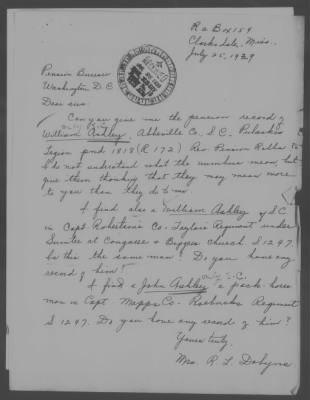 R 2 Box 159
Clarksdale, Miss.,
July 25, 1929
Pension Bureau
Washington D C
Dear sirs.
Can you give me the pension record of
William Ashley, Abbeville Co, S.C. Pulaskis
Legion pnd 1818 (R 172) Rev Pension Rolls
I do not understand what the numbers mean, but
give them thinking that they may mean more
to you than they do to me.
I find also a William Ashley of S.C.
in Capt Robertsons Co - Taylors Regiment under
Sumter at Congaree & Biggin church S 1247.
Is this the same man? Do you have any
record of him?
I find a John Ashley, S.C. a pack-horse
man in Capt. Mapps Co - Roebucks Regiment
S 1247. Do you have any record of him?
Yours truly,
Mrs. R. L.